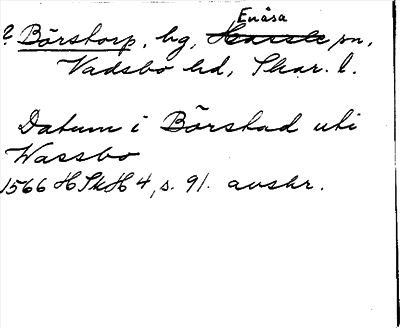 Enåsa
? Börstorp, hg, Hassle sn,
Vadsbo hd, Skar. l.
Datum i Börstad uti
Wassbo
1566 HSkH 4, s. 91. avskr.